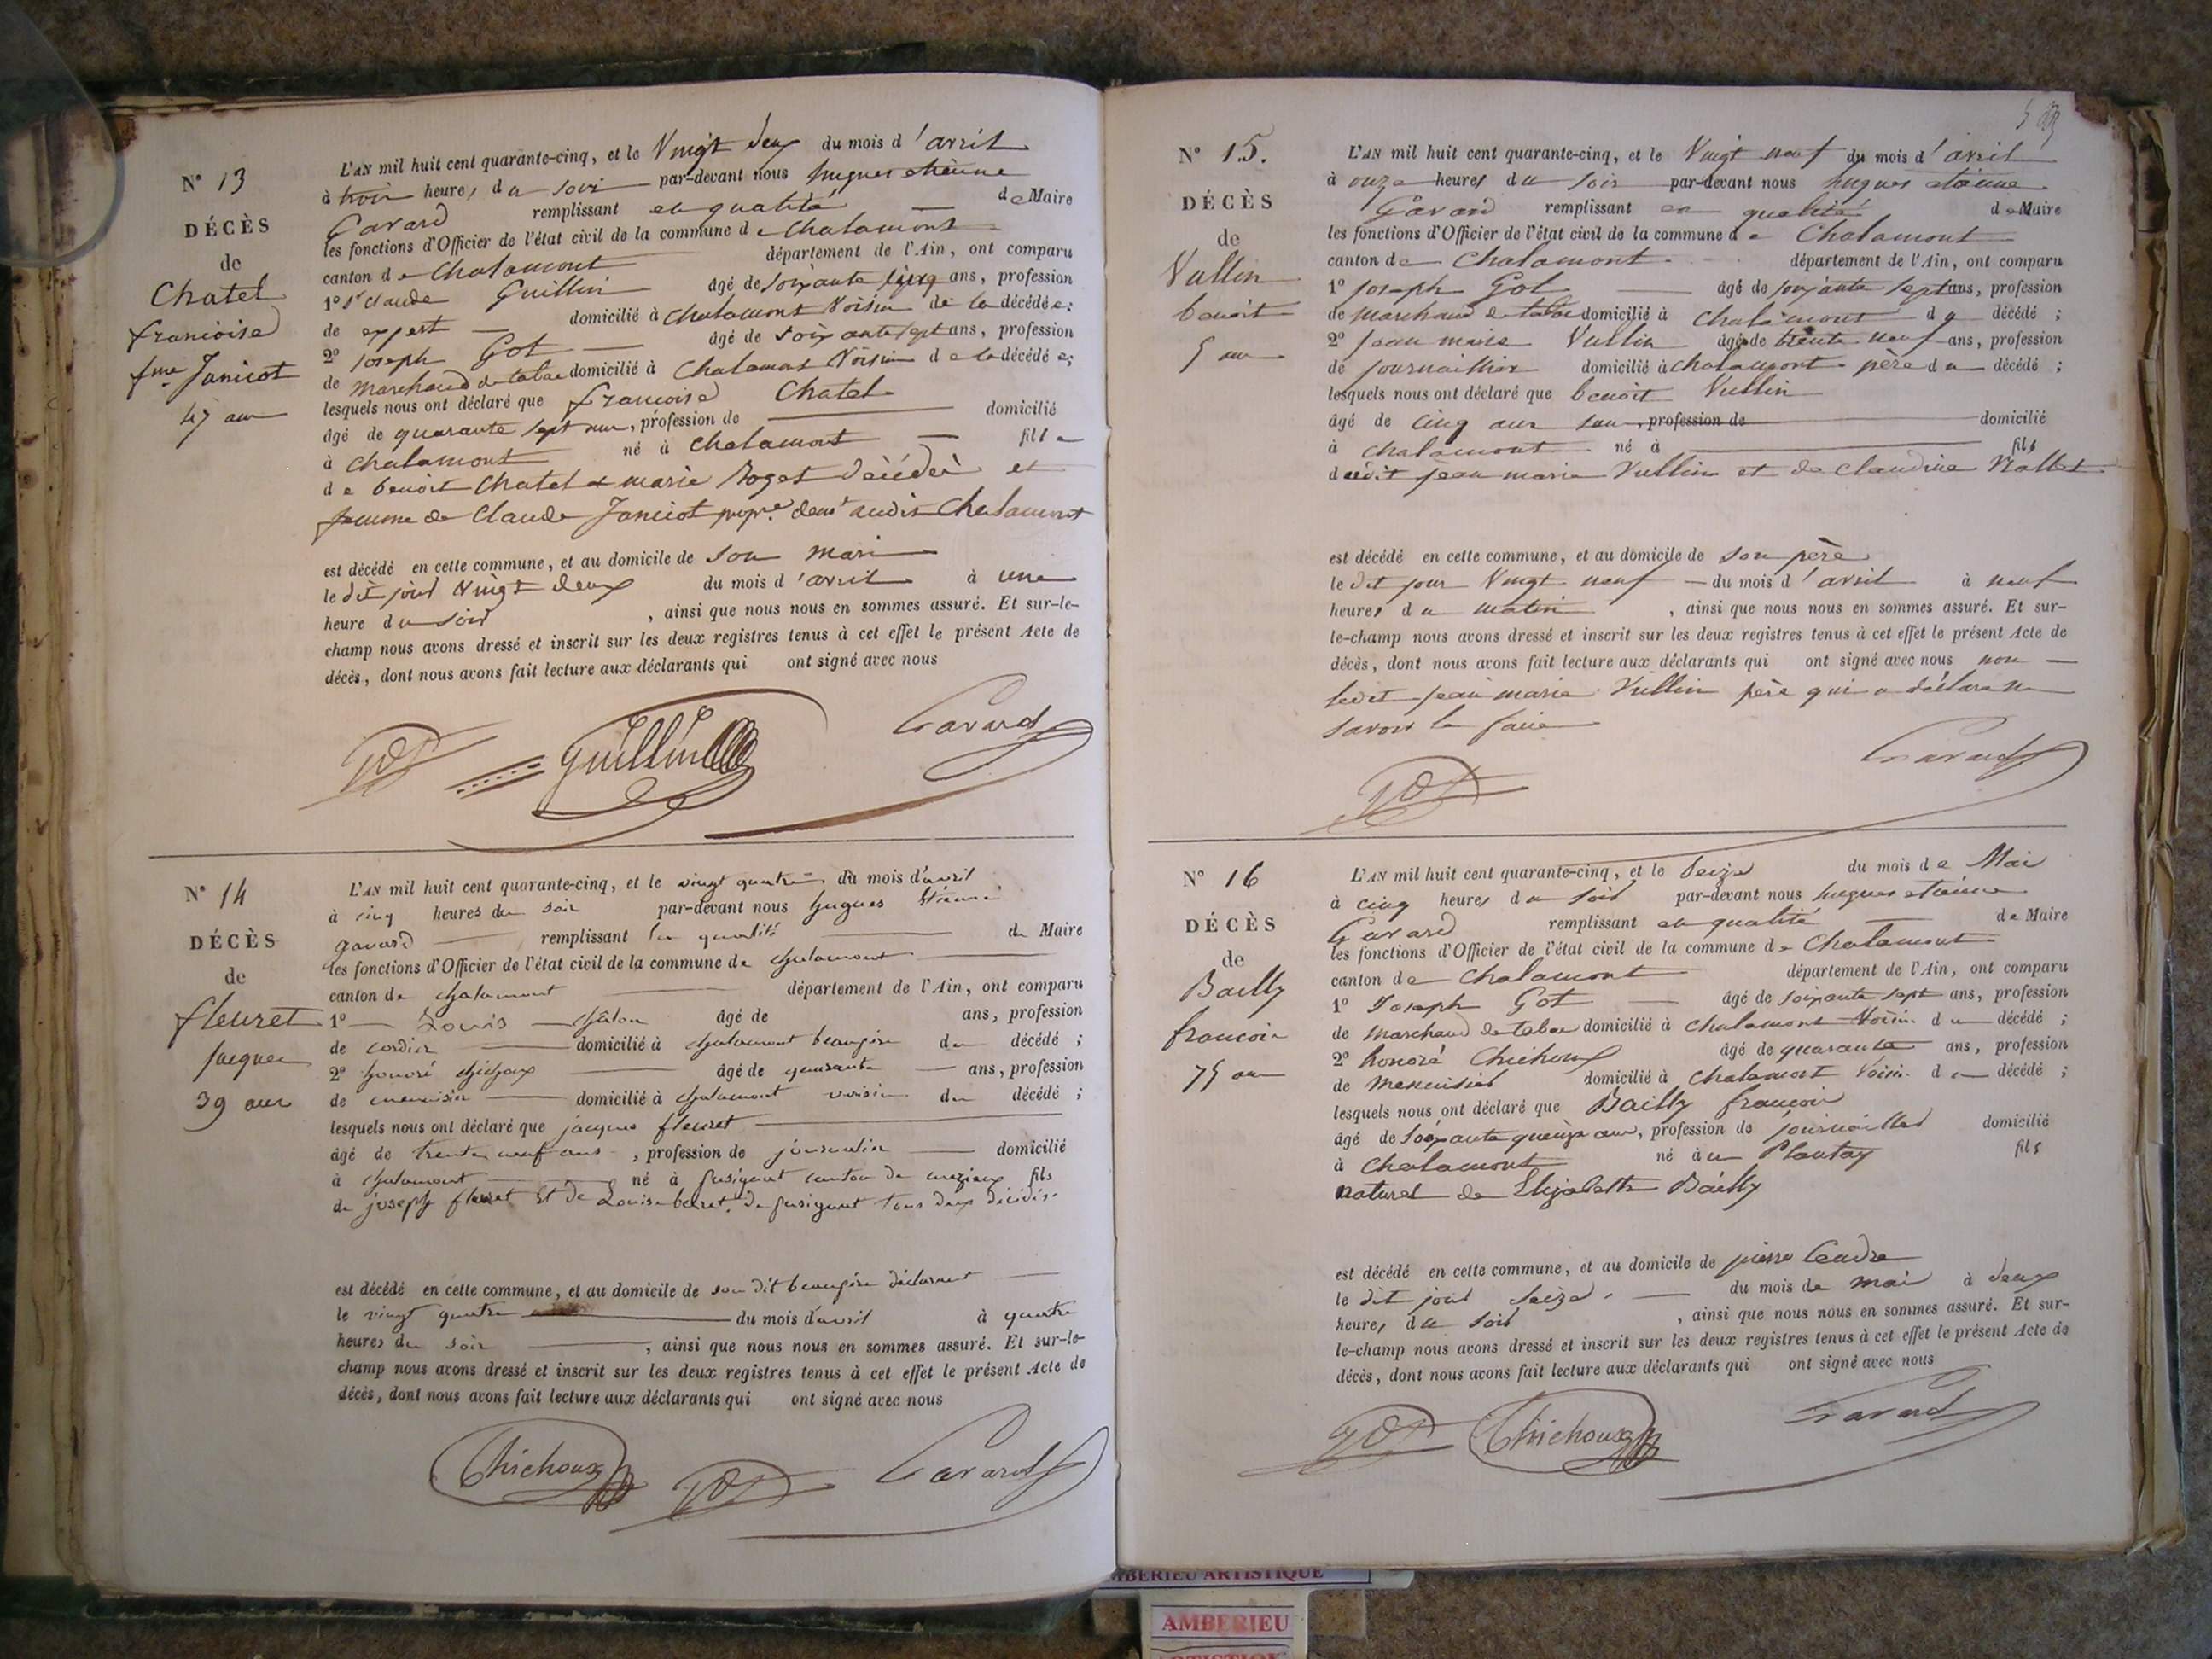 N° 13
DÉCÈS
de
Chatel
francoise
fme Janicot
47 ans
L'AN mil huit cent quarante-cinq, et le Vingt deux du mois d'avril
à trois heures du soir par-devant nous hugues etienne
Gavard remplissant en qualité de Maire
les fonctions d'Officier de l'état civil de la commune de Chalamont
canton de Chalamont département de l'Ain, ont comparu
1° st claude Guillin âgé de soixante cinq ans, profession
de expert domicilié à Chalamont Voisin de la décédée;
2° joseph Got âgé de soixante sept ans, profession
de marchand de tabac domicilié à Chalamont Voisin de la décédée;
lesquels nous ont déclaré que francoise Chatel
âgé de quarante sept ans, profession de domicilié
à chalamont né à chalamont fille
de benoit Chatel et marie Roget décédés et
femme de Claude Janicot propre demt audit Chalamont
est décédé en cette commune, et au domicile de son mari
le dit jour Vingt deux du mois d'avril à une
heure du soir, ainsi que nous nous en sommes assuré. Et sur-le-
champ nous avons dressé et inscrit sur les deux registres tenus à cet effet le présent Acte de
décès, dont nous avons fait lecture aux déclarants qui ont signé avec nous
Got Guillin Gavard
N° 14
DÉCÈS
de
fleuret
jacques
39 ans
L'AN mil huit cent quarante-cinq, et le vingt quatre du mois d'avril
à cinq heures du soir par-devant nous hugues Etienne
gavard remplissant en qualité de Maire
les fonctions d'Officier de l'état civil de la commune de chalamont
canton de chalamont département de l'Ain, ont comparu
1° Louis âgé de ans, profession
de cordier domicilié à chalamont beaupère du décédé;
2° honoré chichoux âgé de quarante ans, profession
de menuisier domicilié à chalamont voisin du décédé;
lesquels nous ont déclaré que jacques fleuret
âgé de trente neuf ans, profession de journalier domicilié
à chalamont né à pusignat canton de meziaux fils
de joseph fleuret Et de Louise de pusignat tous deux décédés.
est décédé en cette commune, et au domicile de son dit beaupère déclarant
le vingt quatre du mois d'avril à quatre
heures du soir, ainsi que nous nous en sommes assuré. Et sur-le-
champ nous avons dressé et inscrit sur les deux registres tenus à cet effet le présent Acte de
décès, dont nous avons fait lecture aux déclarants qui ont signé avec nous
Chichoux Got Gavard
N° 15.
DÉCÈS
de
Vullin
benoit
5 ans
L'AN mil huit cent quarante-cinq, et le Vingt neuf du mois d'avril
à onze heures du soir par-devant nous hugues etienne
Gavard remplissant en qualité de Maire
les fonctions d'Officier de l'état civil de la commune de Chalamont
canton de Chalamont département de l'Ain, ont comparu
1° joseph Got âgé de soixante sept ans, profession
de marchand de tabac domicilié à Chalamont du décédé;
2° jean marie Vullin âgé de trente neuf ans, profession
de journaillier domicilié à chalamont père du décédé;
lesquels nous ont déclaré que benoit Vullin
âgé de cinq ans sans, profession de domicilié
à chalamont né à fils
dudit jean marie Vullin et de Claudine
est décédé en cette commune, et au domicile de son père
le dit jour Vingt neuf du mois d'avril à neuf
heures du matin, ainsi que nous nous en sommes assuré. Et sur-
le-champ nous avons dressé et inscrit sur les deux registres tenus à cet effet le présent Acte de
décès, dont nous avons fait lecture aux déclarants qui ont signé avec nous non
ledit jean marie Vullin père qui a déclaré ne
savoir le faire
Got Gavard
N° 16
DÉCÈS
de
Bailly
francois
75 ans
L'AN mil huit cent quarante-cinq, et le Seize du mois de Mai
à cinq heures du soir par-devant nous hugues etienne
Gavard remplissant en qualité de Maire
les fonctions d'Officier de l'état civil de la commune de Chalamont
canton de Chalamont département de l'Ain, ont comparu
1° Joseph Got âgé de soixante sept ans, profession
de marchand de tabac domicilié à Chalamont Voisin du décédé;
2° honoré Chichoux âgé de quarante ans, profession
de menuisier domicilié à Chalamont Voisin du décédé;
lesquels nous ont déclaré que Bailly francois
âgé de soixante quinze ans, profession de journaillier domicilié
à Chalamont né à u Plantay fils
naturel de Elizabeth Bailly
est décédé en cette commune, et au domicile de pierre
le dit jour Seize du mois de mai à deux
heures du soir, ainsi que nous nous en sommes assuré. Et sur-
le-champ nous avons dressé et inscrit sur les deux registres tenus à cet effet le présent Acte de
décès, dont nous avons fait lecture aux déclarants qui ont signé avec nous
Got Chichoux Gavard
AMBERIEU ARTISTIQUE
AMBERIEU
ARTISTIQUE